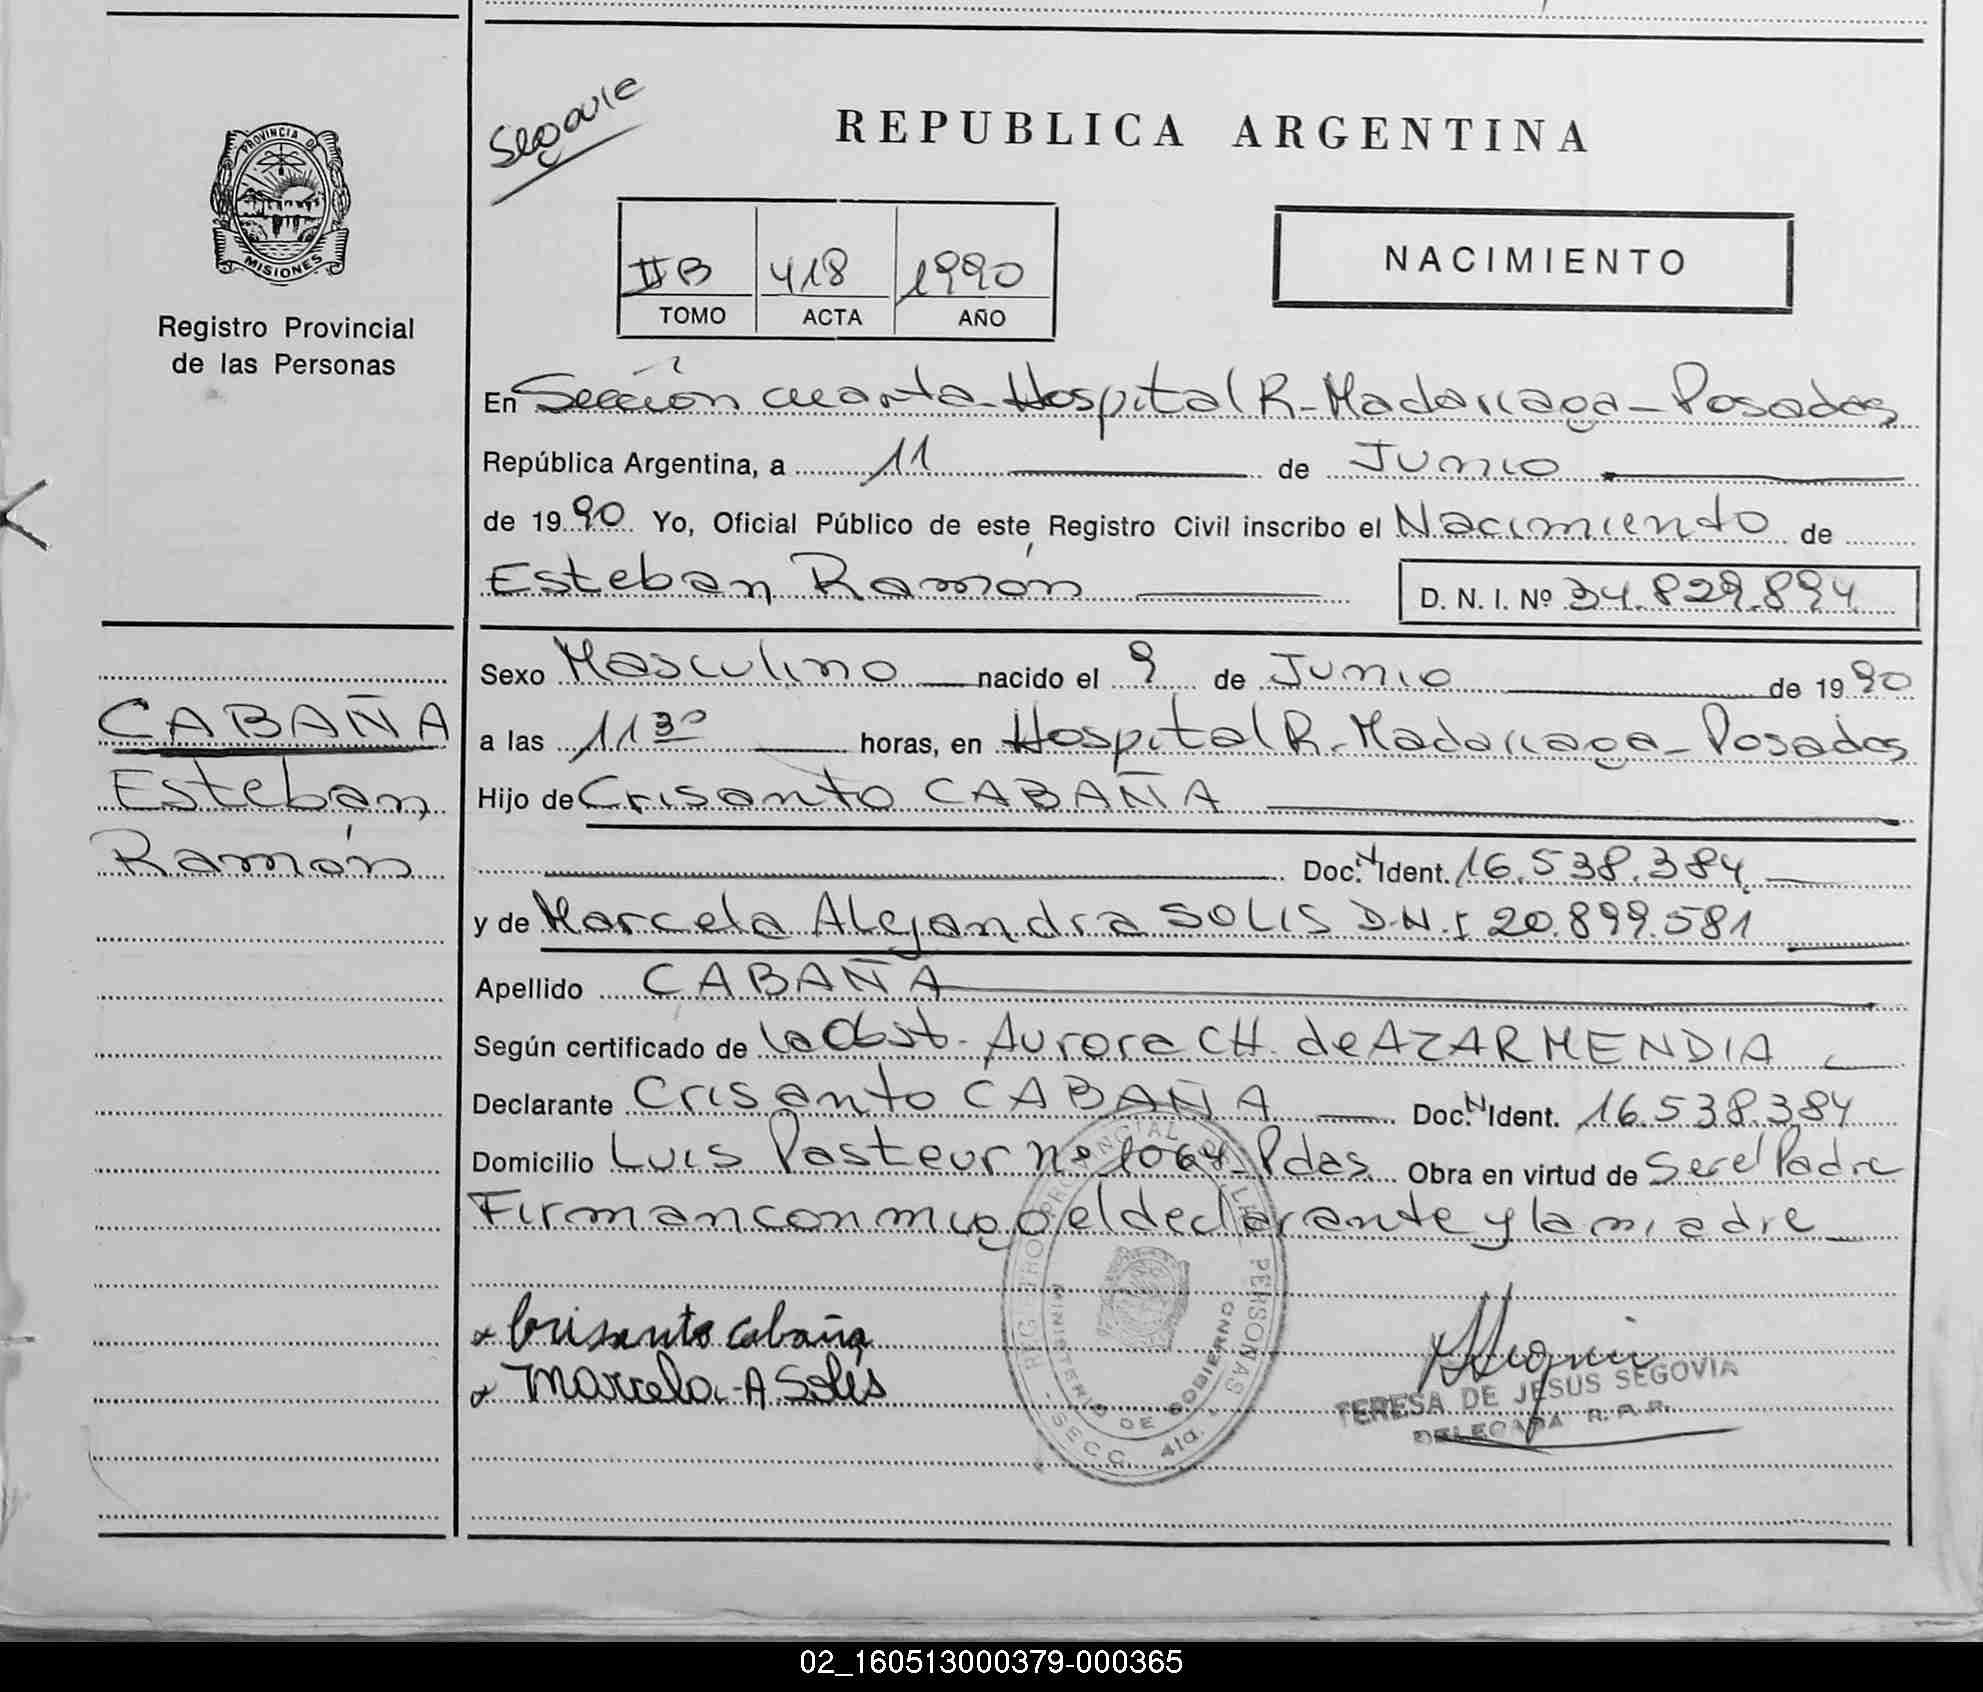 Segovie
REPUBLICA ARGENTINA
PROVINCIA DE
MISIONES
Registro Provincial
de las Personas
II B 418 1990
TOMO ACTA AÑO
NACIMIENTO
En Sección cuarta - Hospital R. Madariaga - Posadas
República Argentina, a 11 de Junio
de 1990 Yo, Oficial Público de este Registro Civil inscribo el Nacimiento de
Esteban Ramón D. N. I. Nº 34.829.894
Sexo Masculino nacido el 9 de Junio de 1990
CABAÑA
Esteban
Ramón
a las 11 30 horas, en Hospital R. Madariaga - Posadas
Hijo de Crisanto CABAÑA
Doc. N Ident. 16.538.384
y de Marcela Alejandra SOLIS D.N.I 20.899.581
Apellido CABAÑA
Según certificado de la Obst. Aurora CH. de AZARMENDIA
Declarante Crisanto CABAÑA Doc. N Ident. 16.538.384
Domicilio Luis Pasteur Nº 1064 - Pdas. Obra en virtud de Ser el Padre
Firman conmigo el declarante y la madre
x Crisanto Cabaña
x Marcela - A. Solis
REGISTRO PROVINCIAL DE LAS PERSONAS
MINISTERIO DE GOBIERNO
- SECC. 4ta. -
TERESA DE JESUS SEGOVIA
DELEGADA R. P. P.
02_160513000379-000365